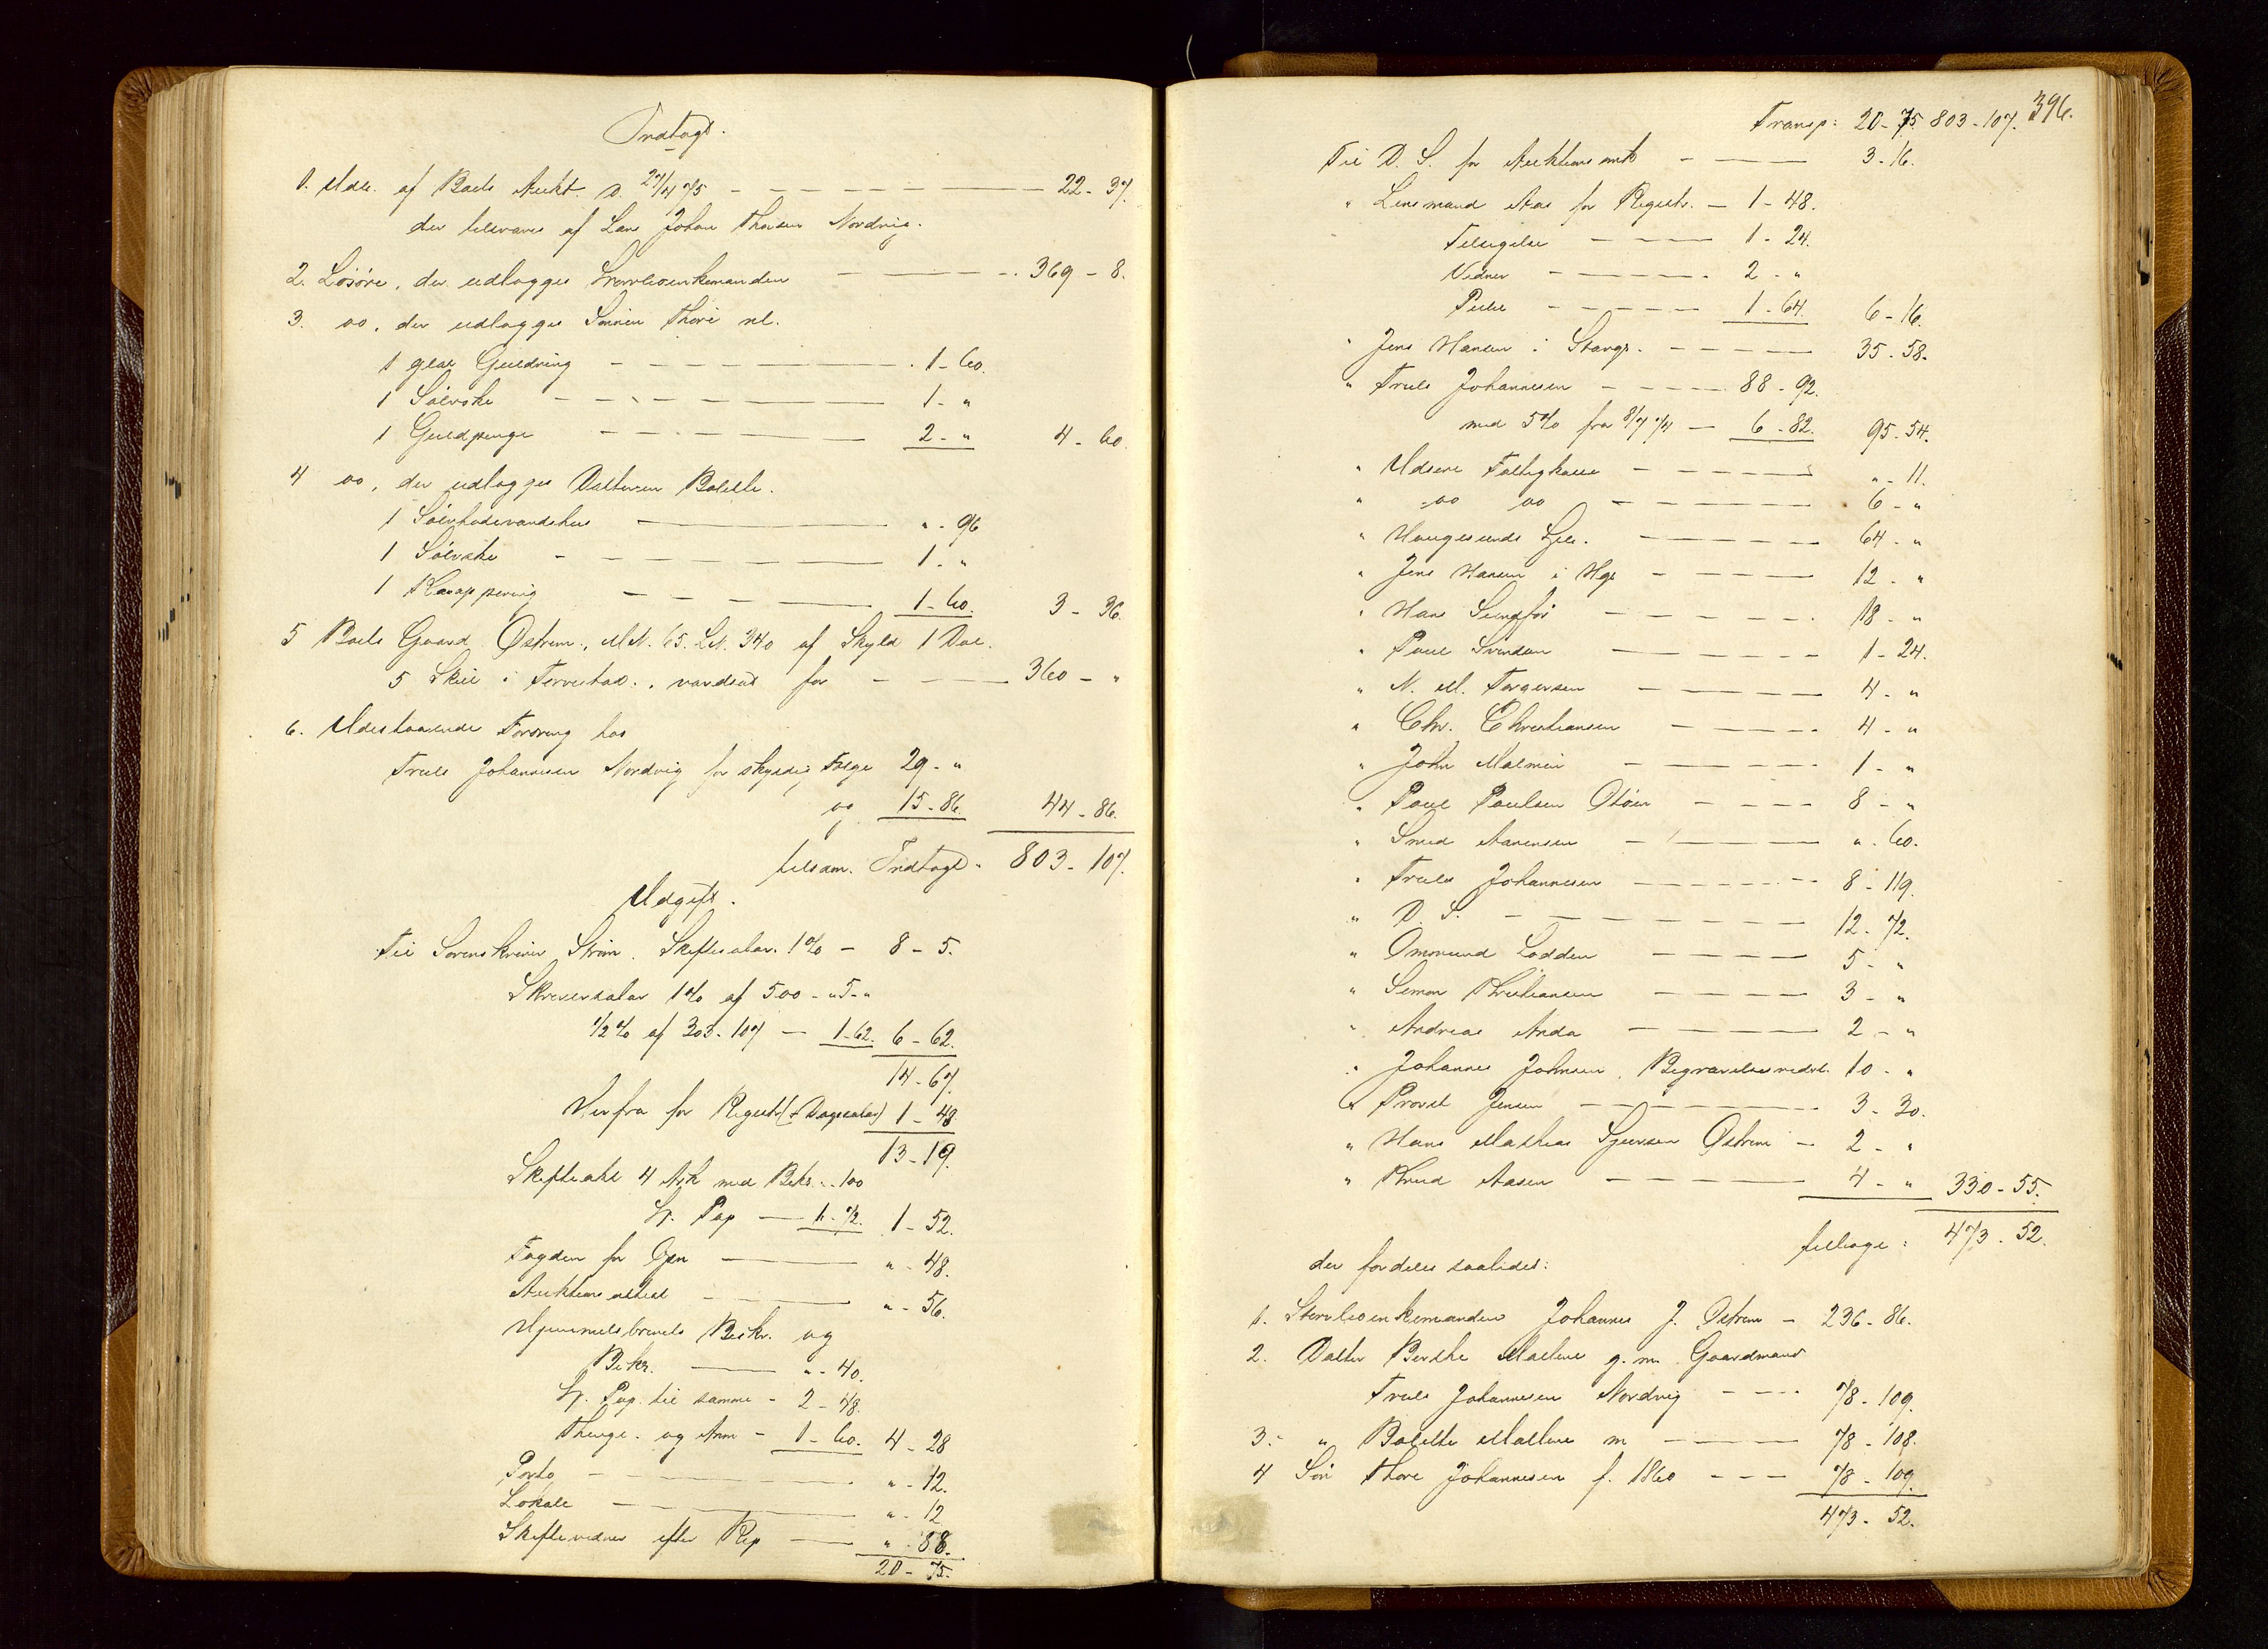 Indtægt.
1. Udb. af Boets Aukt. d. 27/4 75 — 22 - 37.
der tilsvares af Lars Johan Thorsen Nordvig.
2. Løsøre, der udlægges Stervboenkemanden — 369 - 8.
3. do, der udlægges Sønnen Thore nl.
1 glat Guldring — 1 - 60.
1 Sølvske — 1 - "
1 Guldpenge — 2 - " 4 - 60.
4 do, der udlægges Datteren Bolette.
1 Sølvhovedvandshus — " - 96
1 Sølvske — 1 - "
1 Knappering — 1 - 60. 3 - 36.
5 Boets Gaard Østrem, M.N. 65. L.N. 340 af Skyld 1 Dal.
5 Skill i Torvestad, vurderet for — 360 - "
6. Udestaaende Fordring hos
Truls Johannesen Nordvig for skyldig Følge 29 - "
og 15 - 86. 44 - 86.
tilsam. Indtægt - 803 - 107.
Udgift.
Til Sorenskriver Strøm. Skiftesalar. 1% — 8 - 5.
Skriversalar 1% af 500 - " 5 - "
1/2% af 303 - 107 — 1 - 62. 6 - 62.
14 - 67.
Herfra for Registr (÷ Dagsalar) 1 - 48
13 - 19.
Skifteakt 4 Ark med Bekr. " - 100
St. Pap — " - 72. 1 - 52.
Fogden for Opn — " - 48.
Auktions attest — " - 56.
Hjemmelsbrevets Besk. og
Bekr. — " - 40.
St. Pap. til samme - 2 - 48.
Thingl. og Anm - 1 - 60. 4 - 28
Porto — " - 12.
Lokale — " - 12
Skiftevidner efter Rep — " - 88.
20 - 75.
396.
Transp: 20 - 75. 803 - 107.
Til D. S. for Auktions omk — 3 - 16.
" Lensmand Aas for Registr. — 1 - 48.
Tilsigelse — 1 - 24.
Vidner — 2 - "
Pulse — 1 - 64. 6 - 16.
" Jens Hansen i Stavgr. — 35 - 58.
" Truls Johannesen — 88 - 92.
med 5% fra 8/7 74 — 6 - 82. 95 - 54.
" Udsire Fattigkasse — " - 11.
" do do — 6 - "
" Haugesunds — 64 - "
" Jens Hansen i Hgs — 12 - "
" Hans Sundfør — 18 - "
" Poul Svendsen — 1 - 24.
" N. M. Torgersen — 4 - "
" Chr. Christiansen — 4 - "
" John Malmin — 1 - "
" Poul Poulsen Støen — 8 - "
" Smed Aanensen — " - 60.
" Truls Johannesen — 8 - 119.
" D. S. — 12 - 72.
" Ommund Lodden — 5 - "
" Simon Kristiansen — 3 - "
" Andreas Anda — 2 - "
" Johannes Johnsen, Begravelsesvederl. 10 - "
" Provst Jensen — 3 - 30.
" Hans Mathias Sjursen Østrem — 2 - "
" Knud Aasen — 4 - " 330 - 55.
tilbage: 473 - 52.
der fordeles saaledes:
1. Stervboenkemanden Johannes J. Østrem — 236 - 86.
2. Datter Berthe Malene g. m. Gaardmand
Truls Johannesen Nordvig — 78 - 109.
3. " Bolette Mallene m — 78 - 108.
4 Søn Thore Johannesen f. 1860 — 78 - 109.
473 - 52.